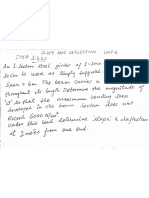 SLOPE AND DEFLECTION UNIT-4
An I-Section Steel girder of I=
30 cm is used as simply supported
Span = 6m. The beam carries a
throughout its length Determine the magnitude of
so that the maximum bending stress
developed in the beam section does not
exceed
under this load determine slope & deflection
at 2 metre from one end